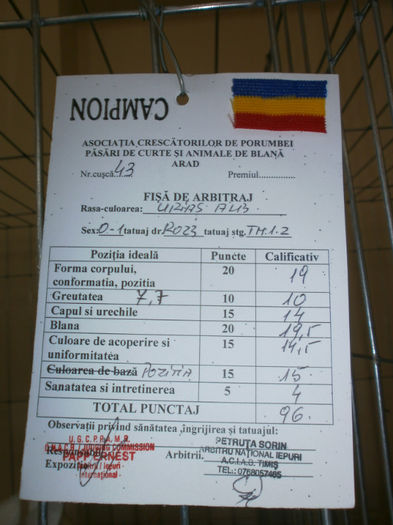 CAMPION
ASOCIAȚIA CRESCĂTORILOR DE PORUMBEI
PĂSĂRI DE CURTE ȘI ANIMALE DE BLANĂ
ARAD
Nr.cușcă 43 Premiul...............
FIȘĂ DE ARBITRAJ
Rasa-culoarea: URIAȘ ALB
Sex: 0-1 tatuaj dr. RO23 tatuaj stg. TM.1.2
Poziția ideală Puncte Calificativ
Forma corpului, conformatia, pozitia 20 19
Greutatea 7,7 10 10
Capul si urechile 15 14
Blana 20 19,5
Culoare de acoperire si uniformitatea 15 14,5
Culoarea de bază POZITIA 15 15
Sanatatea si intretinerea 5 4
TOTAL PUNCTAJ 96
Observații privind sănătatea ,îngrijirea și tatuajul:
U.G.C.P.A.M.R.
JUDGING COMMISSION
PAPP ERNEST
Arbitru / Iepuri
International
Expoziției
Arbitrii.
PETRUȚA SORIN
ARBITRU NAȚIONAL IEPURI
A.C.I.A.S. TIMIȘ
TEL.: 0768057485